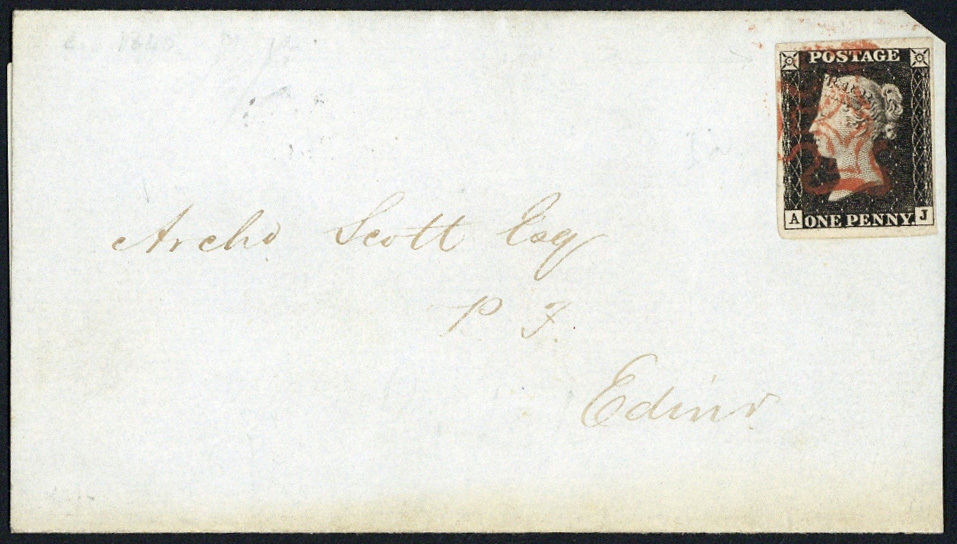 POSTAGE
A ONE PENNY. J
Archd Scott Esq
P. F.
Edinr